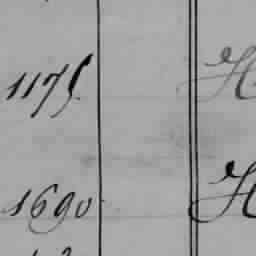 1175. H
1690 H